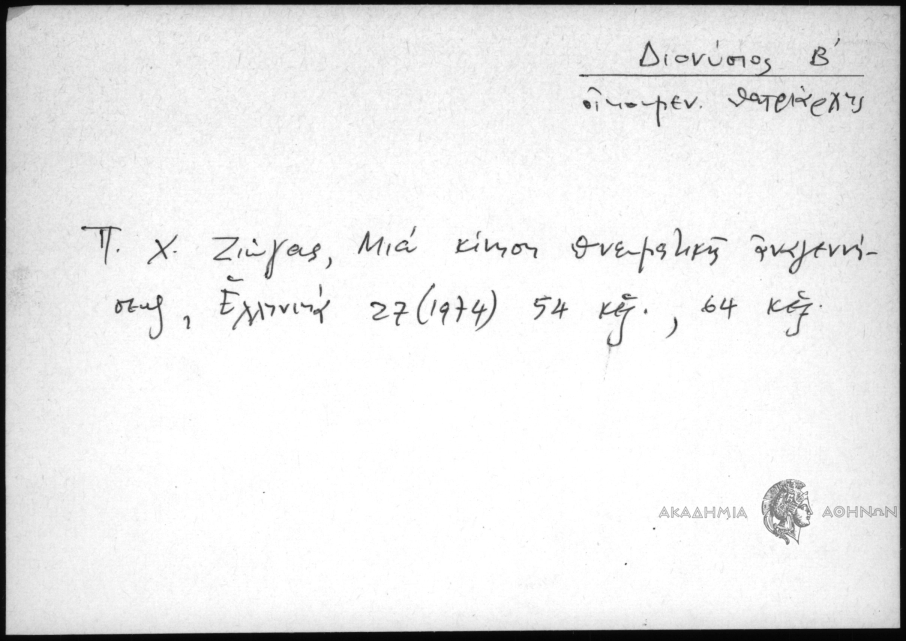 Διονύσιος Β´
οἰκουμεν. Πατριάρχης
Π. Χ. Ζιώγας, Μιά κίνηση πνευματικῆς ἀναγεννή-
σεως, Ἑλληνικά 27 (1974) 54 κἑξ., 64 κἑξ.
ΑΚΑΔΗΜΙΑ ΑΘΗΝΩΝ